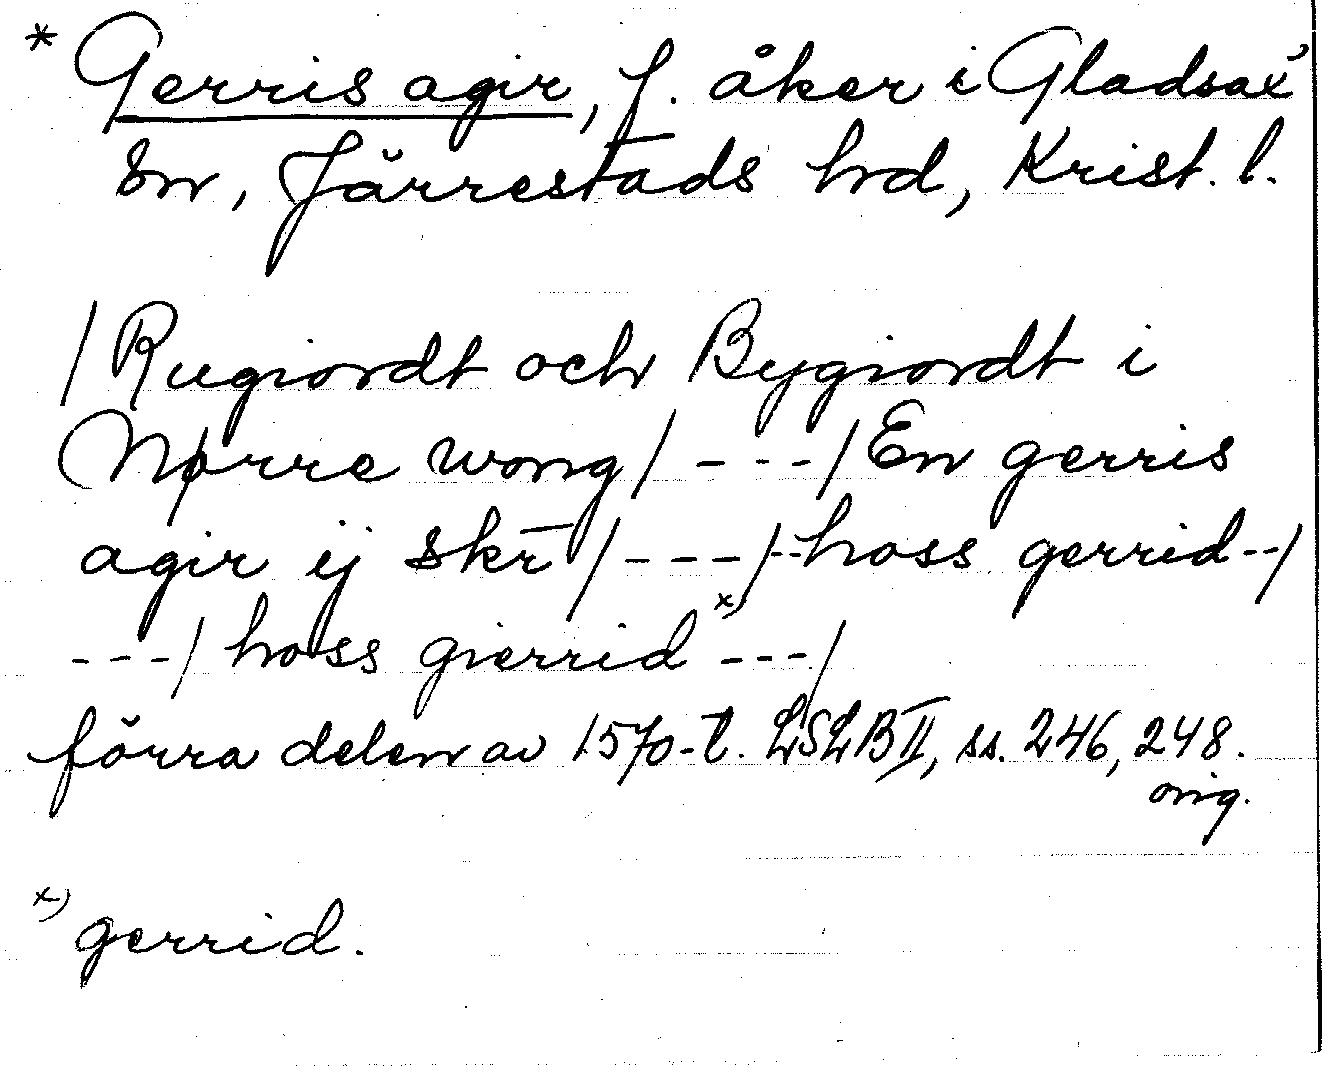 * Gerris agir, f. åker i Gladsax'
sn, Järrestads hrd, Krist. l.
/Rugiordt och Bygiordt i
Nørre wong/ - - - /En gerris
agir ij skr̄/ - - - / -- hoss gerrid --/
- - - / hoss gierrid x) - - - /
förra delen av 1570-t. LSLB II, ss. 246, 248.
orig.
x) gerrid.